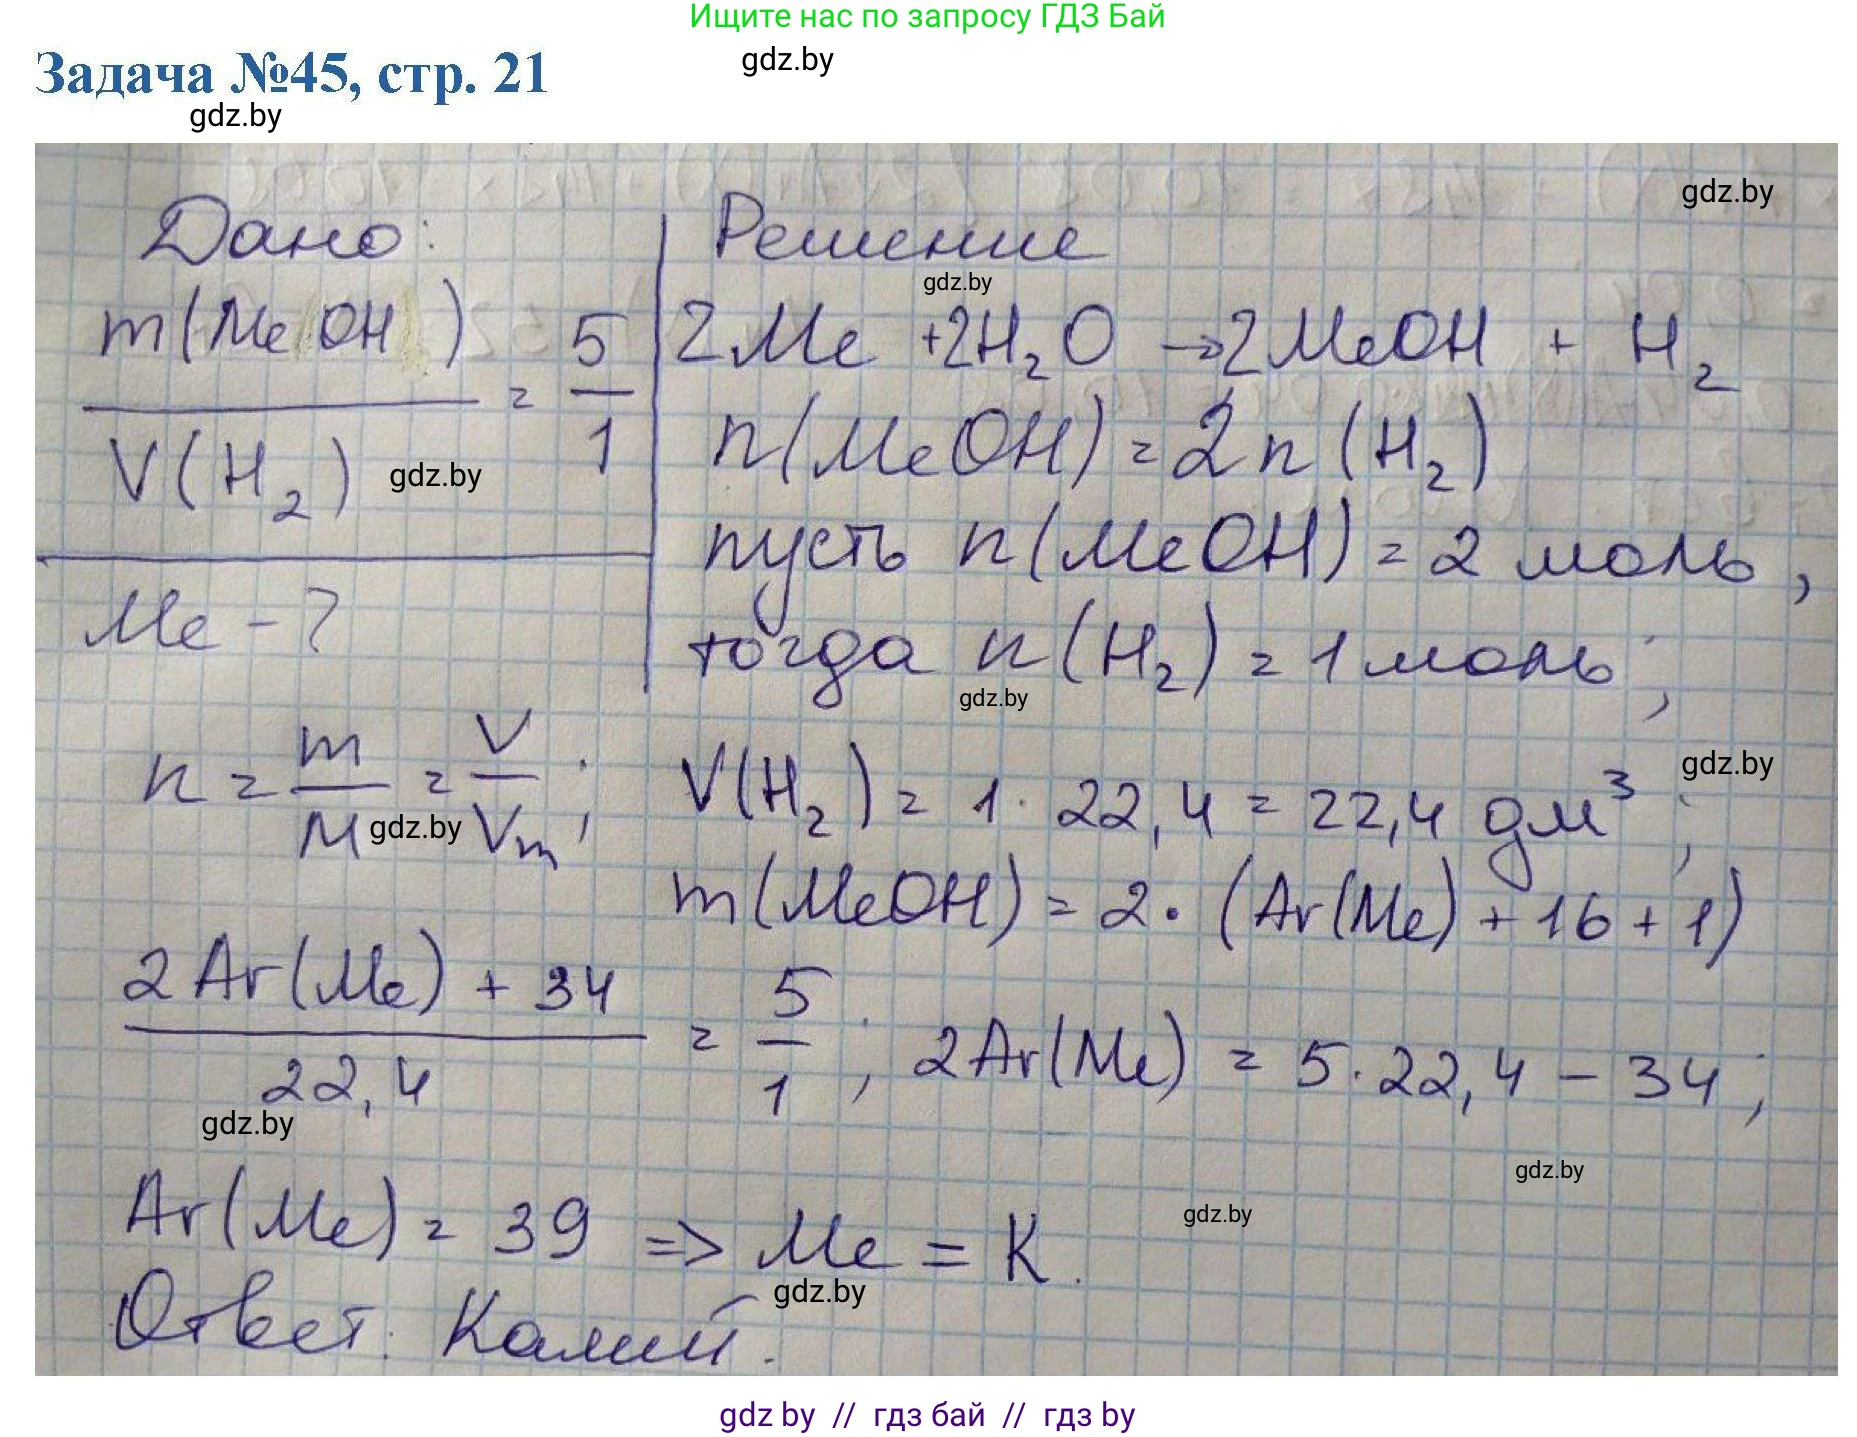 Ищите нас по запросу ГДЗ Бай
Задача №45, стр. 21
gdz.by
gdz.by
gdz.by
Дано:
m(MeOH) / V(H₂) = 5/1
gdz.by
Me - ?
Решение
gdz.by
2Me + 2H₂O → 2MeOH + H₂
n(MeOH) = 2n(H₂)
пусть n(MeOH) = 2 моль,
тогда n(H₂) = 1 моль;
gdz.by
n = m/M = V/Vm;
gdz.by
gdz.by
V(H₂) = 1 · 22,4 = 22,4 дм³;
m(MeOH) = 2 · (Ar(Me) + 16 + 1)
(2Ar(Me) + 34) / 22,4 = 5/1; 2Ar(Me) = 5 · 22,4 - 34;
gdz.by
gdz.by
gdz.by
Ar(Me) = 39 => Me = K.
gdz.by
Ответ: Калий.
gdz by // гдз бай // гдз by